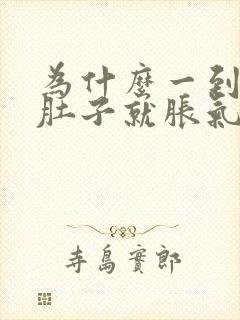 為什麼一到
肚子就脹氣
寺島實郎